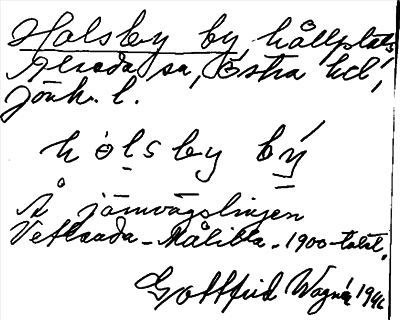 Holsby by, hållplats,
Alseda sn, Östra hd,
Jönk. l.
hòlsby bý
Å järnvägslinjen
Vetlanda - Målilla. 1900-talet.
Gottfrid Wagnér 1942